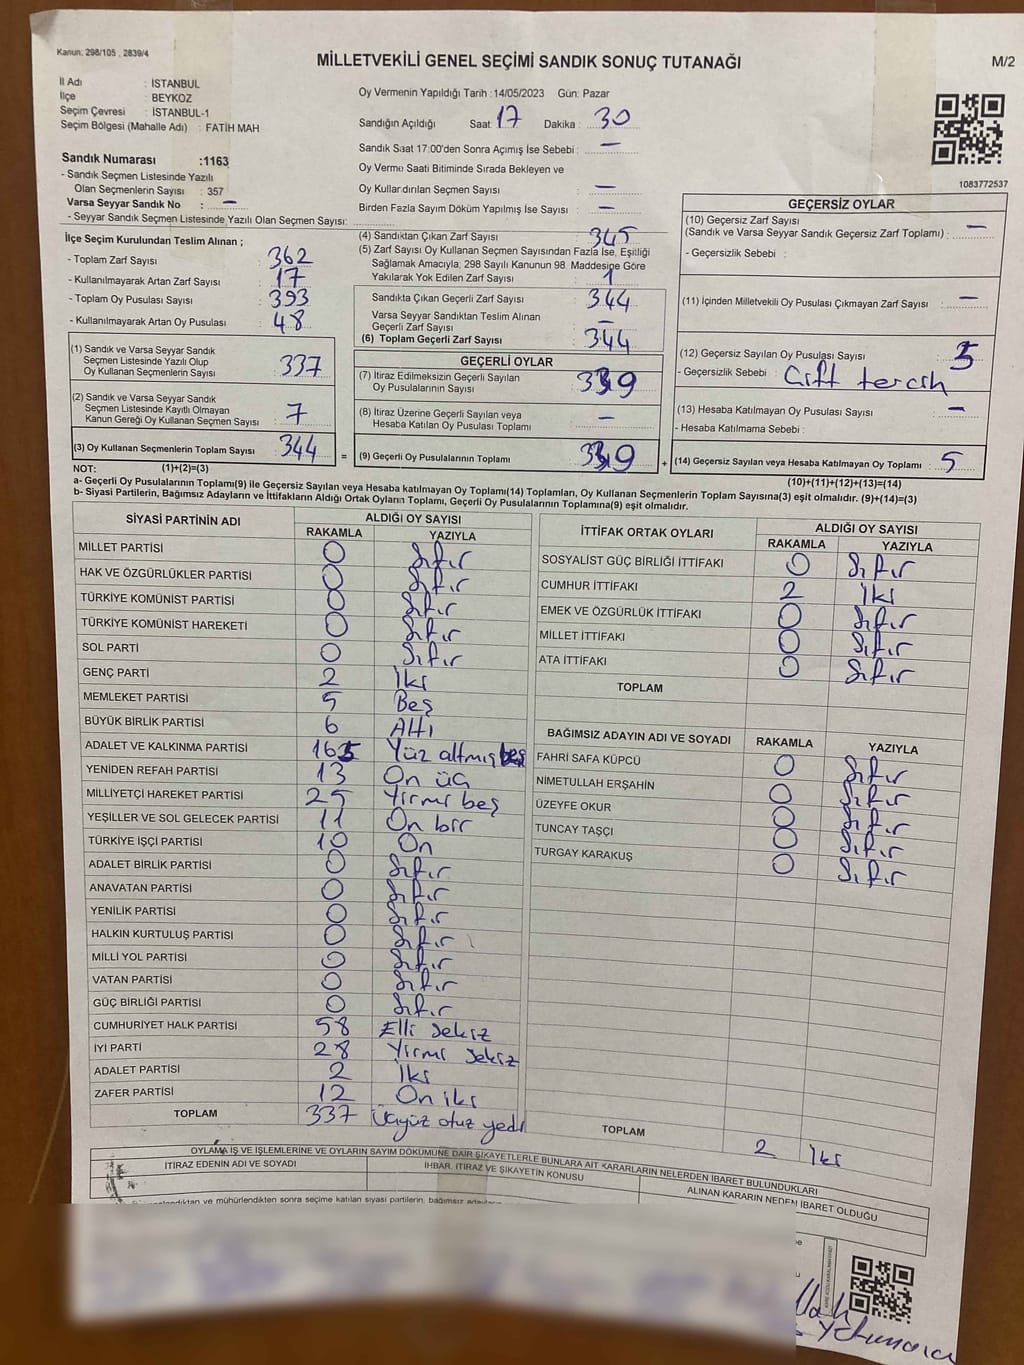 Kanun: 298/105 , 2839/4
MİLLETVEKİLİ GENEL SEÇİMİ SANDIK SONUÇ TUTANAĞI
M/2
İl Adı : İSTANBUL
İlçe : BEYKOZ
Seçim Çevresi : İSTANBUL-1
Seçim Bölgesi (Mahalle Adı) : FATİH MAH
Oy Vermenin Yapıldığı Tarih : 14/05/2023 Gün: Pazar
Sandığın Açıldığı Saat: 17 Dakika : 30
Sandık Saat 17:00'den Sonra Açılmış İse Sebebi : —
Oy Verme Saati Bitiminde Sırada Bekleyen ve
Oy Kullandırılan Seçmen Sayısı : —
Birden Fazla Sayım Döküm Yapılmış İse Sayısı : —
1083772537
Sandık Numarası :1163
- Sandık Seçmen Listesinde Yazılı
Olan Seçmenlerin Sayısı : 357
Varsa Seyyar Sandık No : —
- Seyyar Sandık Seçmen Listesinde Yazılı Olan Seçmen Sayısı:
İlçe Seçim Kurulundan Teslim Alınan ;
- Toplam Zarf Sayısı : 362
- Kullanılmayarak Artan Zarf Sayısı : 17
- Toplam Oy Pusulası Sayısı : 393
- Kullanılmayarak Artan Oy Pusulası : 48
(1) Sandık ve Varsa Seyyar Sandık
Seçmen Listesinde Yazılı Olup
Oy Kullanan Seçmenlerin Sayısı : 337
(2) Sandık ve Varsa Seyyar Sandık
Seçmen Listesinde Kayıtlı Olmayan
Kanun Gereği Oy Kullanan Seçmen Sayısı : 7
(3) Oy Kullanan Seçmenlerin Toplam Sayısı : 344
(4) Sandıktan Çıkan Zarf Sayısı : 345
(5) Zarf Sayısı Oy Kullanan Seçmen Sayısından Fazla İse, Eşitliği
Sağlamak Amacıyla; 298 Sayılı Kanunun 98. Maddesine Göre
Yakılarak Yok Edilen Zarf Sayısı : 1
Sandıkta Çıkan Geçerli Zarf Sayısı : 344
Varsa Seyyar Sandıktan Teslim Alınan
Geçerli Zarf Sayısı : —
(6) Toplam Geçerli Zarf Sayısı : 344
GEÇERLİ OYLAR
(7) İtiraz Edilmeksizin Geçerli Sayılan
Oy Pusulalarının Sayısı : 339
(8) İtiraz Üzerine Geçerli Sayılan veya
Hesaba Katılan Oy Pusulası Toplamı : —
= (9) Geçerli Oy Pusulalarının Toplamı : 339
GEÇERSİZ OYLAR
(10) Geçersiz Zarf Sayısı
(Sandık ve Varsa Seyyar Sandık Geçersiz Zarf Toplamı) : —
- Geçersizlik Sebebi :
(11) İçinden Milletvekili Oy Pusulası Çıkmayan Zarf Sayısı : —
(12) Geçersiz Sayılan Oy Pusulası Sayısı : 5
- Geçersizlik Sebebi : Çift tercih
(13) Hesaba Katılmayan Oy Pusulası Sayısı : —
- Hesaba Katılmama Sebebi :
+ (14) Geçersiz Sayılan veya Hesaba Katılmayan Oy Toplamı : 5
NOT: (1)+(2)=(3) (10)+(11)+(12)+(13)=(14)
a- Geçerli Oy Pusulalarının Toplamı(9) ile Geçersiz Sayılan veya Hesaba katılmayan Oy Toplamı(14) Toplamları, Oy Kullanan Seçmenlerin Toplam Sayısına(3) eşit olmalıdır. (9)+(14)=(3)
b- Siyasi Partilerin, Bağımsız Adayların ve İttifakların Aldığı Ortak Oyların Toplamı, Geçerli Oy Pusulalarının Toplamına(9) eşit olmalıdır.
SİYASİ PARTİNİN ADI ALDIĞI OY SAYISI
RAKAMLA YAZIYLA
MİLLET PARTİSİ 0 Sıfır
HAK VE ÖZGÜRLÜKLER PARTİSİ 0 Sıfır
TÜRKİYE KOMÜNİST PARTİSİ 0 Sıfır
TÜRKİYE KOMÜNİST HAREKETİ 0 Sıfır
SOL PARTİ 0 Sıfır
GENÇ PARTİ 2 İki
MEMLEKET PARTİSİ 5 Beş
BÜYÜK BİRLİK PARTİSİ 6 Altı
ADALET VE KALKINMA PARTİSİ 165 Yüz altmış beş
YENİDEN REFAH PARTİSİ 13 On üç
MİLLİYETÇİ HAREKET PARTİSİ 25 Yirmi beş
YEŞİLLER VE SOL GELECEK PARTİSİ 11 On bir
TÜRKİYE İŞÇİ PARTİSİ 10 On
ADALET BİRLİK PARTİSİ 0 Sıfır
ANAVATAN PARTİSİ 0 Sıfır
YENİLİK PARTİSİ 0 Sıfır
HALKIN KURTULUŞ PARTİSİ 0 Sıfır
MİLLİ YOL PARTİSİ 0 Sıfır
VATAN PARTİSİ 0 Sıfır
GÜÇ BİRLİĞİ PARTİSİ 0 Sıfır
CUMHURİYET HALK PARTİSİ 58 Elli sekiz
İYİ PARTİ 28 Yirmi sekiz
ADALET PARTİSİ 2 İki
ZAFER PARTİSİ 12 On iki
TOPLAM 337 Üçyüz otuz yedi
İTTİFAK ORTAK OYLARI ALDIĞI OY SAYISI
RAKAMLA YAZIYLA
SOSYALİST GÜÇ BİRLİĞİ İTTİFAKI 0 Sıfır
CUMHUR İTTİFAKI 2 İki
EMEK VE ÖZGÜRLÜK İTTİFAKI 0 Sıfır
MİLLET İTTİFAKI 0 Sıfır
ATA İTTİFAKI 0 Sıfır
TOPLAM
BAĞIMSIZ ADAYIN ADI VE SOYADI RAKAMLA YAZIYLA
FAHRİ SAFA KÜPCÜ 0 Sıfır
NİMETULLAH ERŞAHİN 0 Sıfır
ÜZEYFE OKUR 0 Sıfır
TUNCAY TAŞÇI 0 Sıfır
TURGAY KARAKUŞ 0 Sıfır
TOPLAM 2 İki
OYLAMA İŞ VE İŞLEMLERİNE VE OYLARIN SAYIM DÖKÜMÜNE DAİR ŞİKAYETLERLE BUNLARA AİT KARARLARIN NELERDEN İBARET BULUNDUKLARI
İTİRAZ EDENİN ADI VE SOYADI İHBAR, İTİRAZ VE ŞİKAYETİN KONUSU ALINAN KARARIN NEDEN İBARET OLDUĞU
mühürlendikten sonra seçime katılan siyasi partilerin, bağımsız